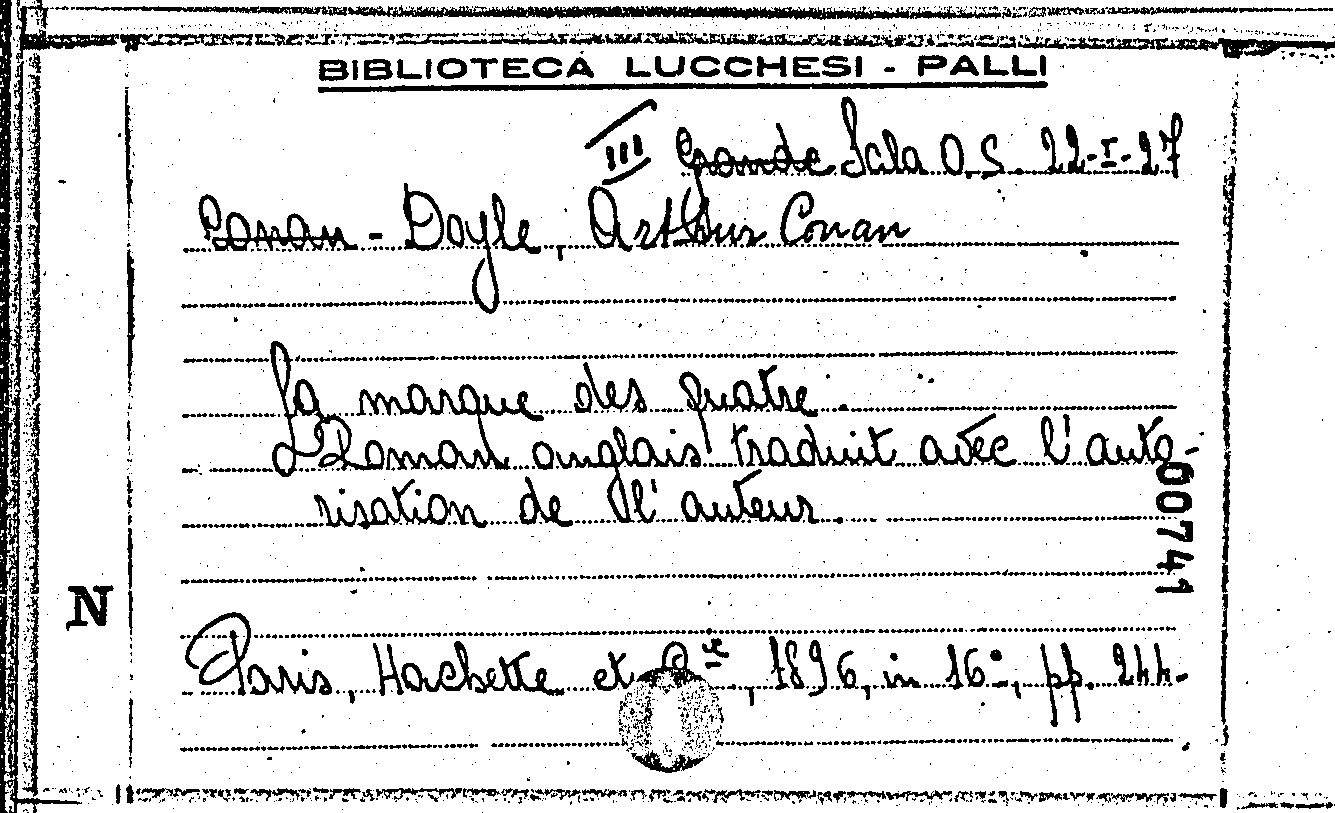 BIBLIOTECA LUCCHESI - PALLI
III Grande Sala O.S. 22-I-27
Conan - Doyle, Arthur Conan
La marque des quatre.
Roman anglais traduit avec l'auto-
risation de l'auteur.
00741
N
Paris, Hachette et C.ie, 1896, in 16°, pp. 244.